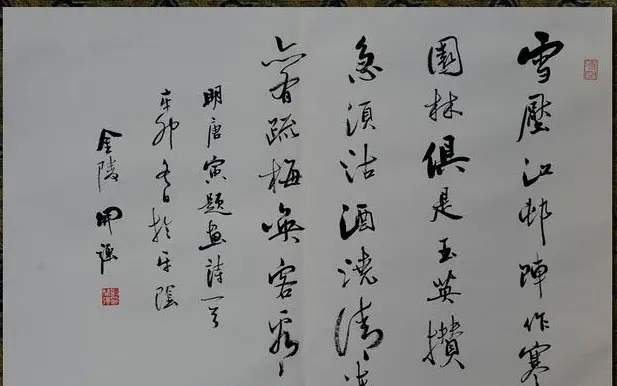 雪壓江邨陣作寒
園林俱是玉英攢
急須沽酒澆清
亦有疏梅喚客看
明唐寅題畫詩一首
辛卯冬日於平陰
金陵